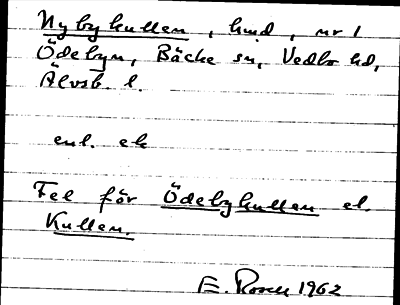 Nybykullen, hmd, nr 1
Ödebyn, Bäcke sn, Vedbo hd,
Älvsb. l.
enl. ek
Fel för Ödebykullen el.
Kullen.
E. 1962